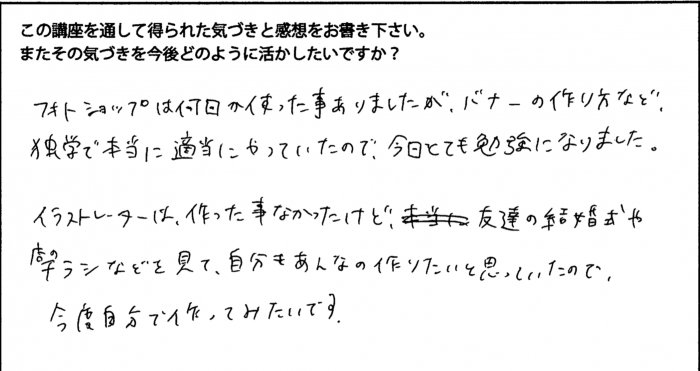 この講座を通して得られた気づきと感想をお書き下さい。
またその気づきを今後どのように活かしたいですか？
フォトショップは何回か使った事ありましたが、バナーの作り方など、
独学で本当に適当にやっていたので、今日とても勉強になりました。
イラストレーターは、作った事なかったけど、本当に友達の結婚式や
店のチラシなどを見て、自分もあんなの作りたいと思っていたので、
今度自分で作ってみたいです。